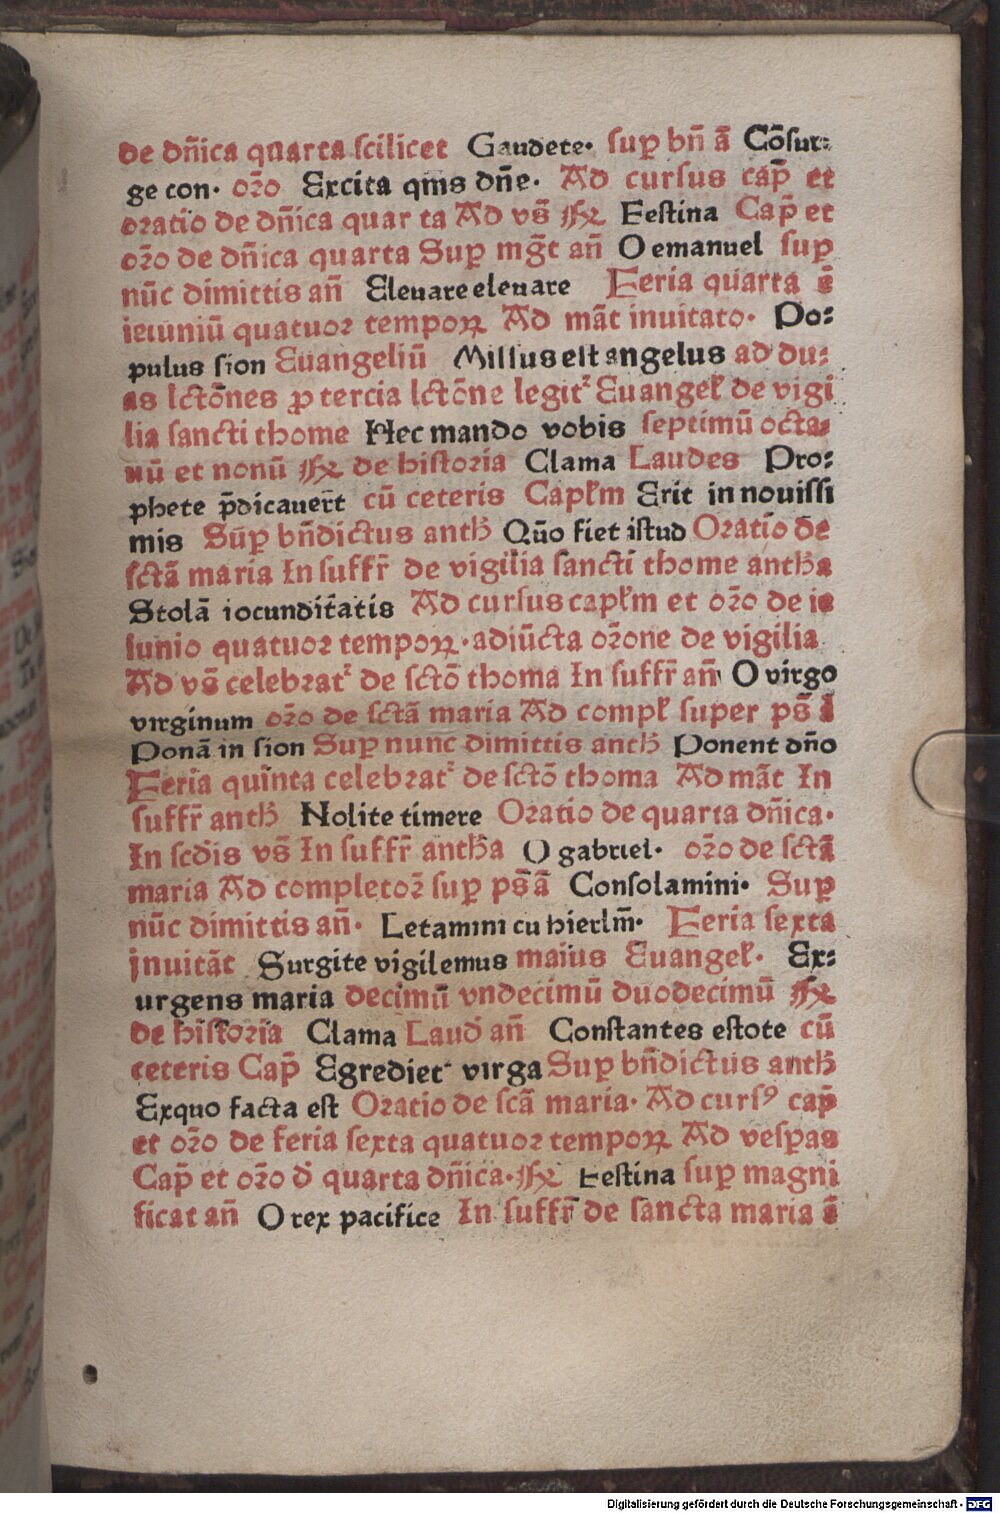 de dn̄ica quarta scilicet Gaudete. sup̱ bn̄ ā Cōsur:
ge con. oꝛ̄o Excita qm̄s dn̄e. Ad cursus cap̄ et
oꝛatio de dn̄ica quar ta Ad vs̄ ℟ Festina Cap̄ et
oꝛ̄o de dn̄ica quarta Sup̱ mḡt an̄ O emanuel sup̱
nūc dimittis an̄ Eleuare eleuare Feria quarta ē
ieiuniū quatuoꝛ tempoꝝ Ad māt inuitato. Po:
pulus sion Euangeliū Missus est angelus ad du:
as lctōnes ꝓ tercia lctōne legit᷑ Euangel̄ de vigi
lia sancti thome Hec mando vobis septimū octa:
uū et nonū ℟ de histoꝛia Clama Laudes Pro:
phete p̄dicauer̄t cū ceteris Capl̄m Erit in nouissi
mis Sup̱ bn̄dictus anth̄ Quō fiet istud Oꝛatio de
sctā maria In suffr̄ de vigilia sancti thome anth̄a
Stolā iocunditatis Ad cursus capl̄m et oꝛ̄o de ie
iunio quatuoꝛ tempoꝝ. adiūcta oꝛ̄one de vigilia
Ad vs̄ celebꝛat᷑ de sctō thoma In suffr̄ an̄ O virgo
virginum oꝛ̄o de sctā maria Ad compl̄ super ps̄ ā
Ponā in sion Sup̱ nunc dimittis anth̄ Ponent dn̄o
Feria quinta celebꝛat᷑ de sctō thoma Ad māt In
suffr̄ anth̄ Nolite timere Oꝛatio de quarta dn̄ica.
In scdis vs̄ In suffr̄ anth̄a O gabriel. oꝛ̄o de sctā
maria Ad completoꝛ̄ sup̱ ps̄ ā Consolamini. Sup̱
nūc dimittis an̄. Letamini cu hierlm̄. Feria sexta
jnuitāt Surgite vigilemus maius Euangel̄. Ex:
urgens maria decimū vndecimū duodecimū ℟
de histoꝛia Clama Laud̄ an̄ Constantes estote cū
ceteris Cap̄ Egrediet᷑ virga Sup̱ bn̄dictus anth̄
Exquo facta est Oꝛatio de scā maria. Ad cursꝰ cap̄
et oꝛ̄o de feria sexta quatuoꝛ tempoꝝ Ad vesp̱as
Cap̄ et oꝛ̄o d̄ quarta dn̄ica. ℟ Festina sup̱ magni
ficat an̄ O rex pacifice In suffr̄ de sancta maria ē
Digitalisierung gefördert durch die Deutsche Forschungsgemeinschaft - DFG